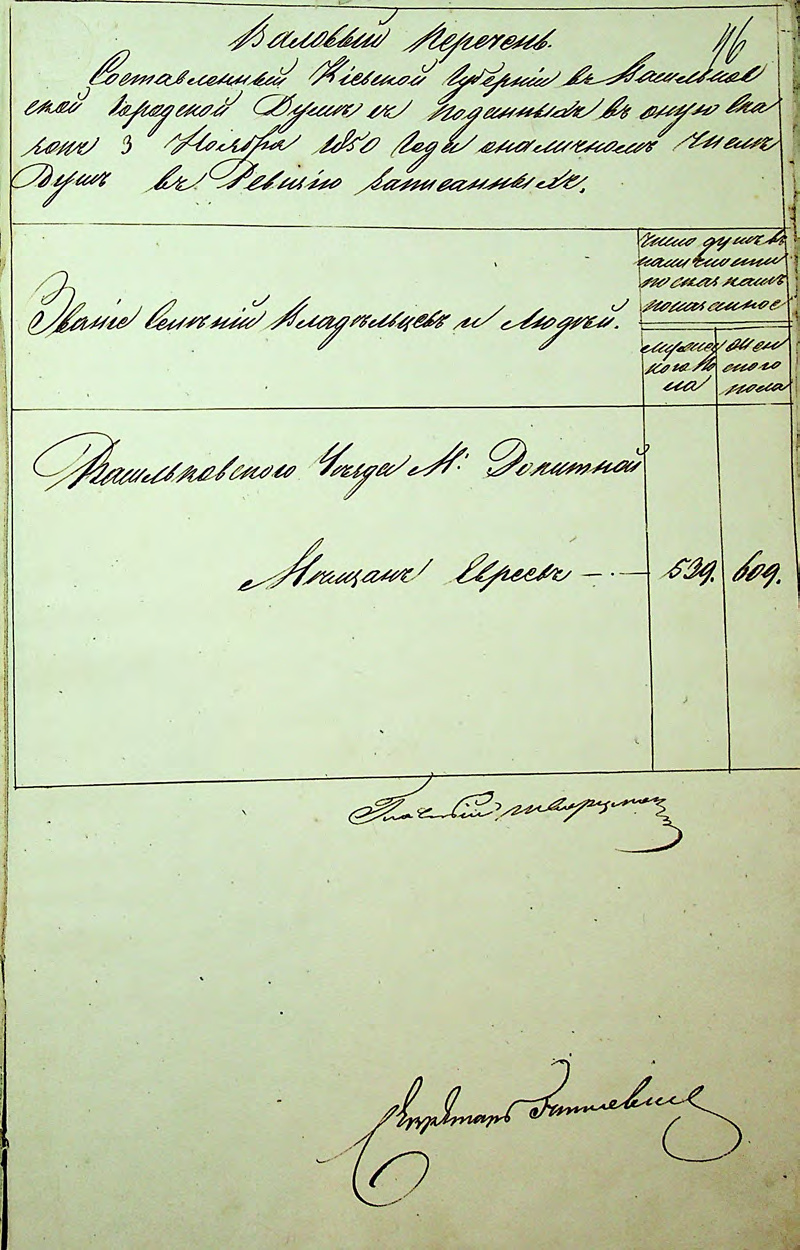 46
Валовый Перечень.
Составленный Кіевской Губерніи въ Васильков
ской Городской Думѣ съ поданныхъ въ оную ска
зокъ 3 Ноября 1850 Года о наличномъ числѣ
Душъ въ Ревизію записанныхъ.
Званіе Селеній Владѣльцевъ и Людей.
Число душъ въ
наличности
по сказкамъ
показанное
мужес
кого по
ла
женс
ского
пола
Васильковского Уѣзда М: Рокитной
Мѣщанъ Евреевъ — . — 539. 609.
Гласный
Секретарь